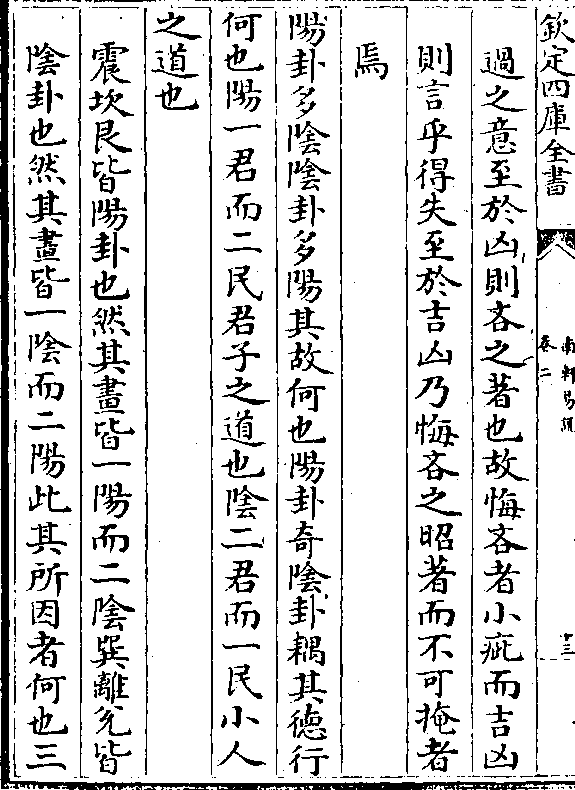 欽定四庫全書
南軒易說
卷二
十三
過之意至於凶則吝之著也故悔吝者小疵而吉凶
則言乎得失至於吉凶乃悔吝之昭著而不可掩者
焉
陽卦多陰陰卦多陽其故何也陽卦奇陰卦耦其德行
何也陽一君而二民君子之道也陰二君而一民小人
之道也
震坎艮皆陽卦也然其畫皆一陽而二陰巽離兌皆
陰卦也然其畫皆一陰而二陽此其所因者何也三